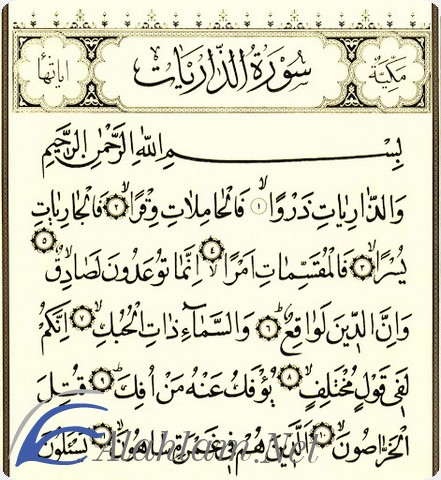 مكية سورة الذاريات اياتها
بسم الله الرحمن الرحيم
والذاريات ذروا ١ فالحاملات وقرا ٢ فالجاريات
يسرا ٣ فالمقسمات امرا ٤ انما توعدون لصادق ٥
وان الدين لواقع ٦ والسماء ذات الحبك ٧ انكم
لفي قول مختلف ٨ يؤفك عنه من افك ٩ قتل
الخراصون ١٠ الذين هم في غمرة ساهون يسئلون
Alahlam.Net